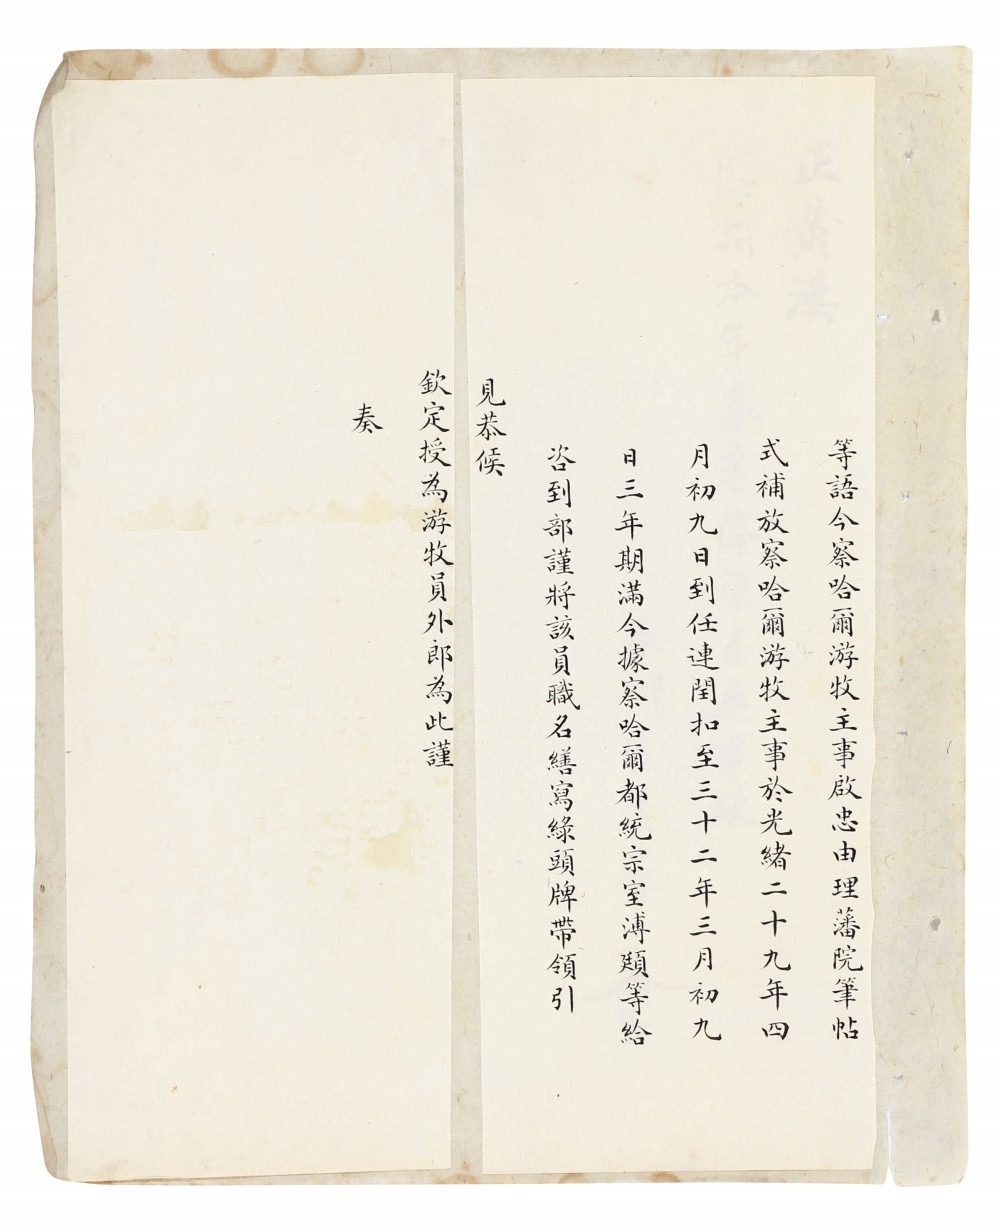 等語今察哈爾游牧主事啟忠由理藩院筆帖
式補放察哈爾游牧主事於光緒二十九年四
月初九日到任連閏扣至三十二年三月初九
日三年期滿今據察哈爾都統宗室溥頲等給
咨到部謹將該員職名繕寫綠頭牌帶領引
見恭候
欽定授為游牧員外郎為此謹
奏